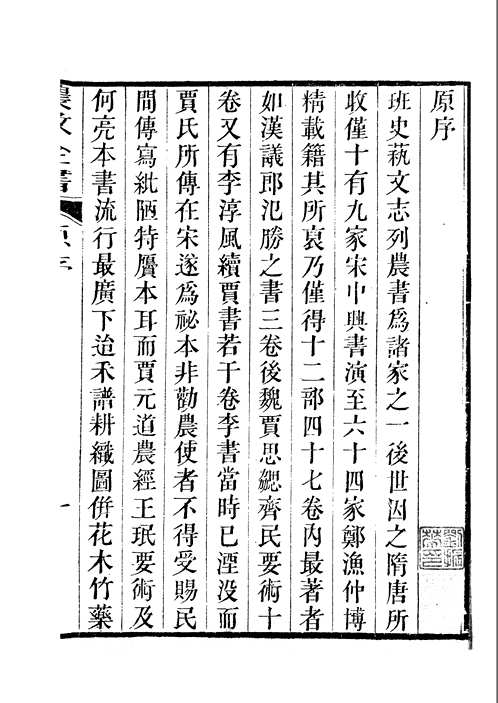 原序
班史蓺文志列農書爲諸家之一後世因之隋唐所
收僅十有九家宋中興書演至六十四家鄭漁仲博
精載籍其所裒乃僅得十二部四十七卷內最著者
如漢議郎氾勝之書三卷後魏賈思勰齊民要術十
卷又有李淳風續賈書若干卷李書當時已湮没而
賈氏所傳在宋遂爲祕本非勸農使者不得受賜民
間傳寫紕陋特贋本耳而賈元道農經王珉要術及
何亮本書流行最廣下迨禾譜耕織圖倂花木竹藥
農政全書
原序
一